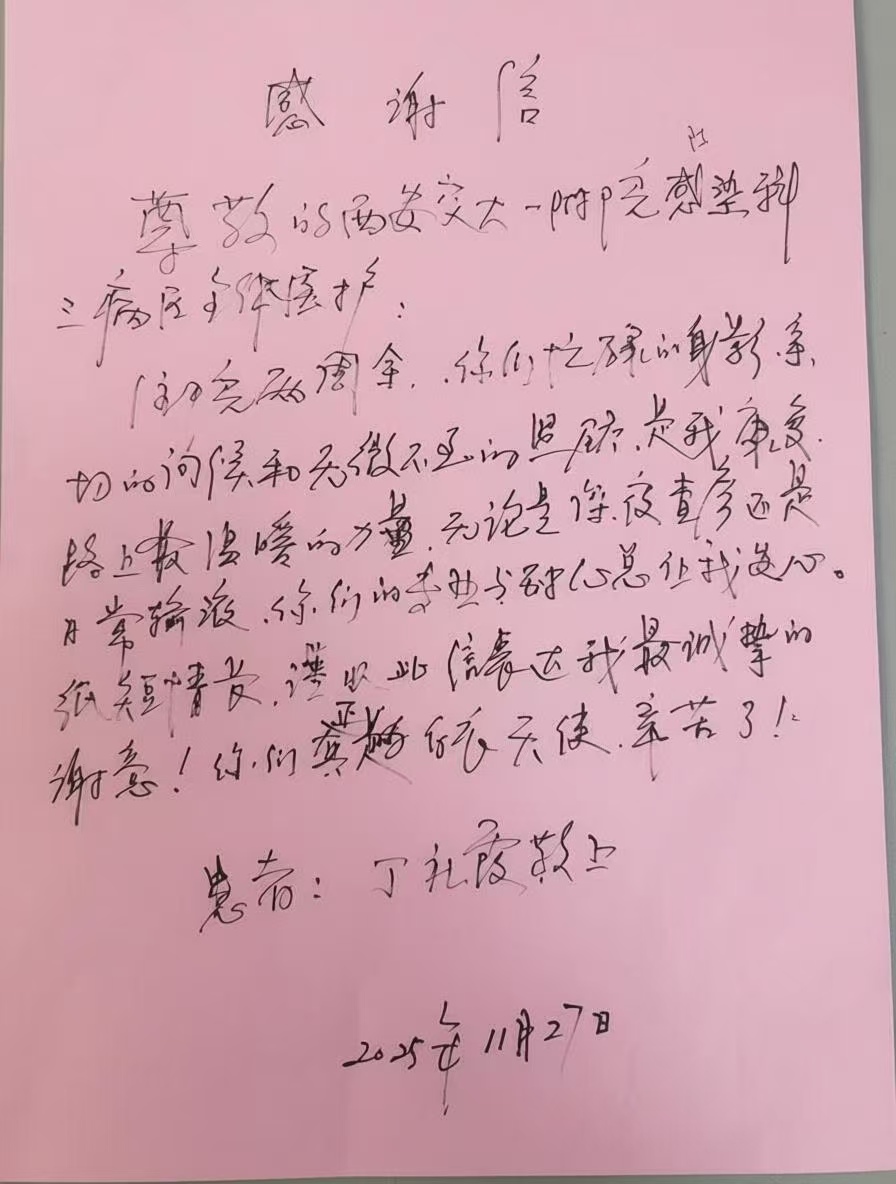 感谢信
尊敬的西安交大一附院感染科
三病区全体医护:
住院两周余,你们忙碌的身影、亲
切的问候和无微不至的照顾,是我康复
路上最温暖的力量,无论是深夜查房还是
日常输液,你们的专业与耐心总让我安心。
纸短情长,谨以此信表达我最诚挚的
谢意!你们真是白衣天使,辛苦了!
患者:丁礼霞敬上
2025年11月27日